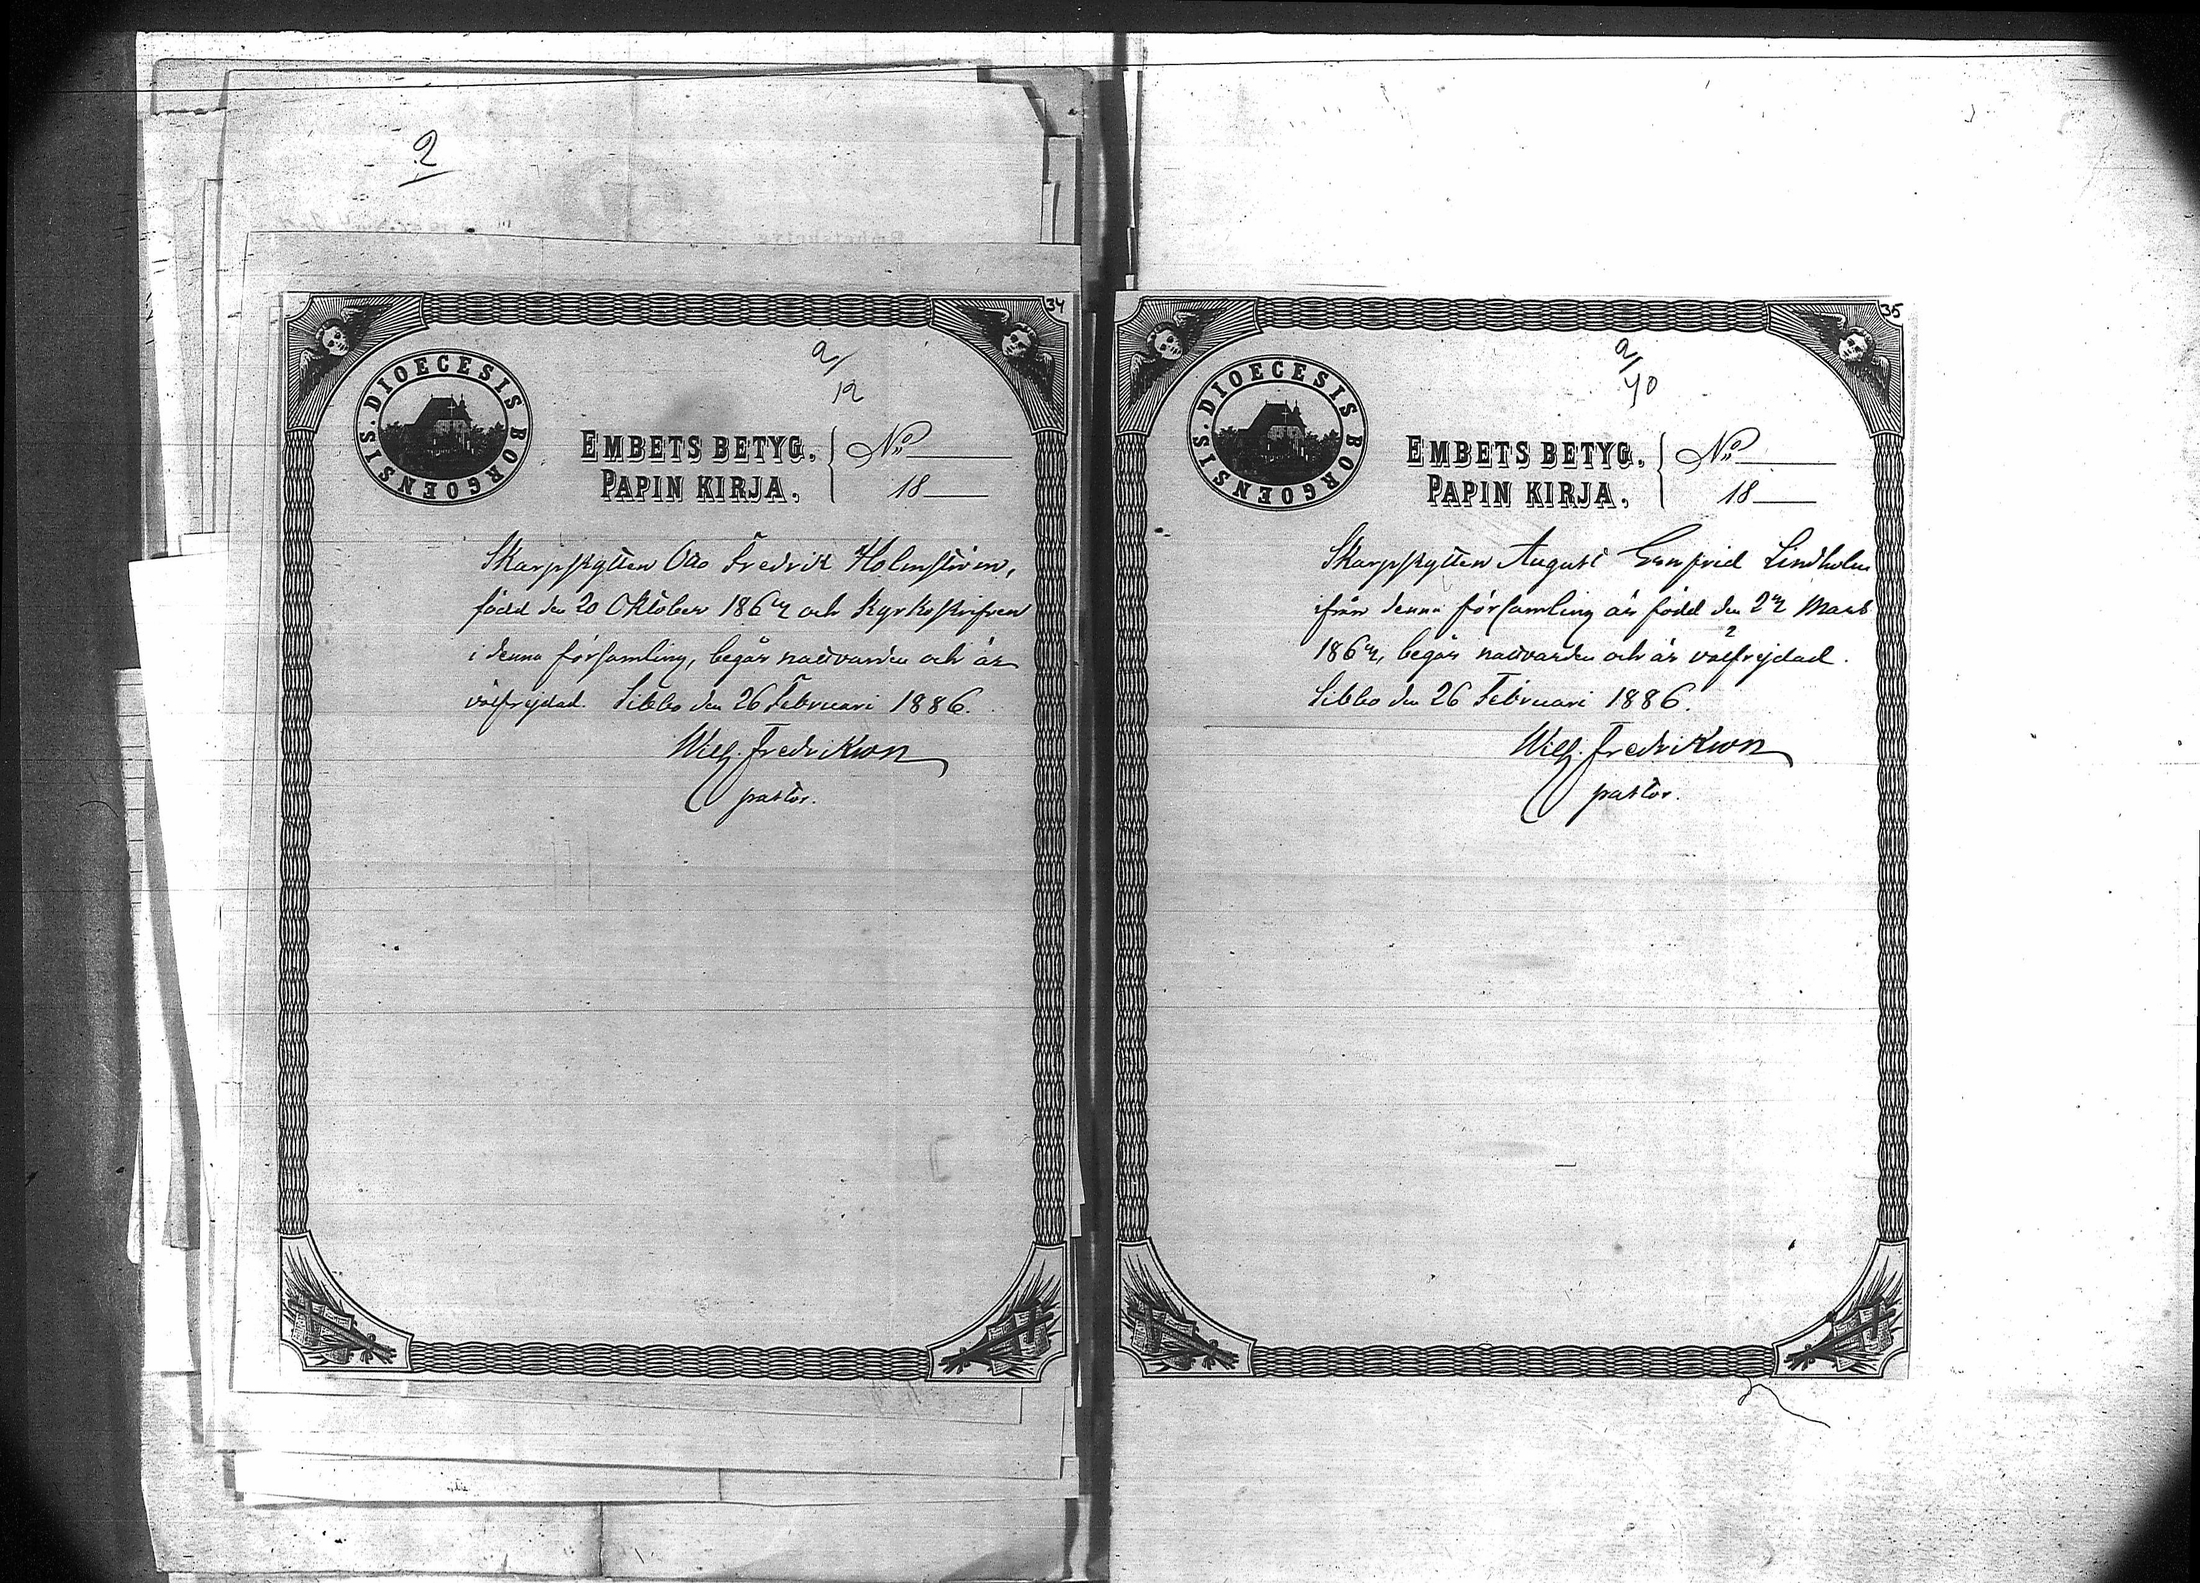 2
34
2/
12
DIOECESIS BORGOENSIS.
EMBETS BETYG.
PAPIN KIRJA.
No
18
Skarpskytten Otto Fredrik Holmström,
född den 20 Oktober 1864 och kyrkoskrifven
i denna församling, begår nattvarden och är
välfrejdad. Sibbo den 26 Februari 1886.
Wilh. Fredrikson
pastor.
35
2/
40
DIOECESIS BORGOENSIS.
EMBETS BETYG.
PAPIN KIRJA.
No
18
Skarpskytten August Lindholm
ifrån denna församling är född den 22 Mars
1864, begår nattvarden och är välfrejdad.
Sibbo den 26 Februari 1886.
Wilh. Fredrikson
pastor.